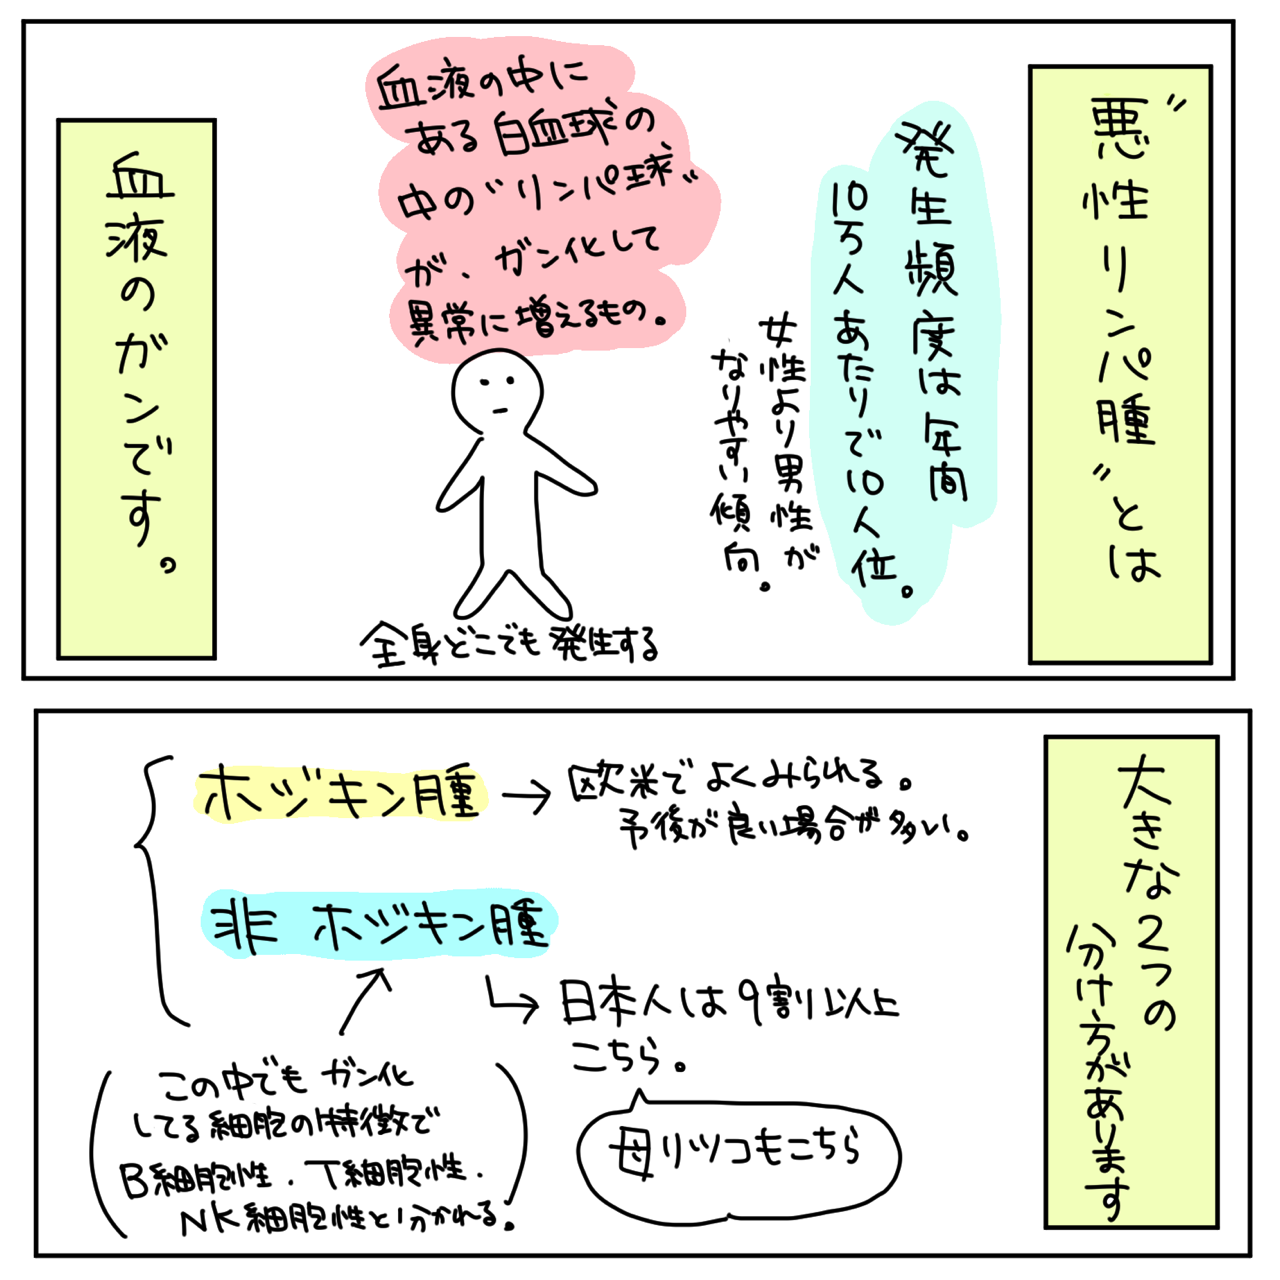 “悪性リンパ腫”とは
発生頻度は年間
10万人あたりで10人位。
女性より男性が
なりやすい傾向。
血液の中に
ある白血球の
中の“リンパ球”
が、ガン化して
異常に増えるもの。
全身どこでも発生する
血液のガンです。
大きな2つの
分け方があります
ホジキン腫→欧米でよくみられる。
予後が良い場合が多い。
非ホジキン腫
→日本人は9割以上
こちら。
母リツコもこちら
(この中でもガン化
してる細胞の特徴で
B細胞性.T細胞性.
NK細胞性と分かれる。)